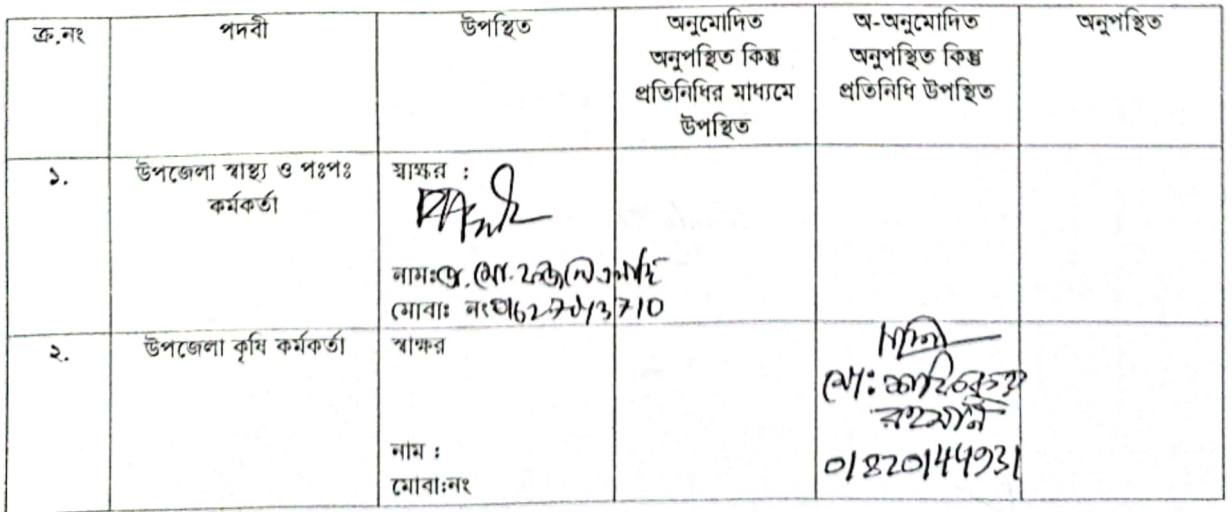 ক্র.নং পদবী উপস্থিত অনুমোদিত অনুপস্থিত কিন্তু প্রতিনিধির মাধ্যমে উপস্থিত অ-অনুমোদিত অনুপস্থিত কিন্তু প্রতিনিধি উপস্থিত অনুপস্থিত
১. উপজেলা স্বাস্থ্য ও পঃপঃ কর্মকর্তা স্বাক্ষর :
নামঃ ডা. মো.
মোবাঃ নং 01627043710
২. উপজেলা কৃষি কর্মকর্তা স্বাক্ষর
মো:
রহমান
নাম :
01820144931
মোবা:নং